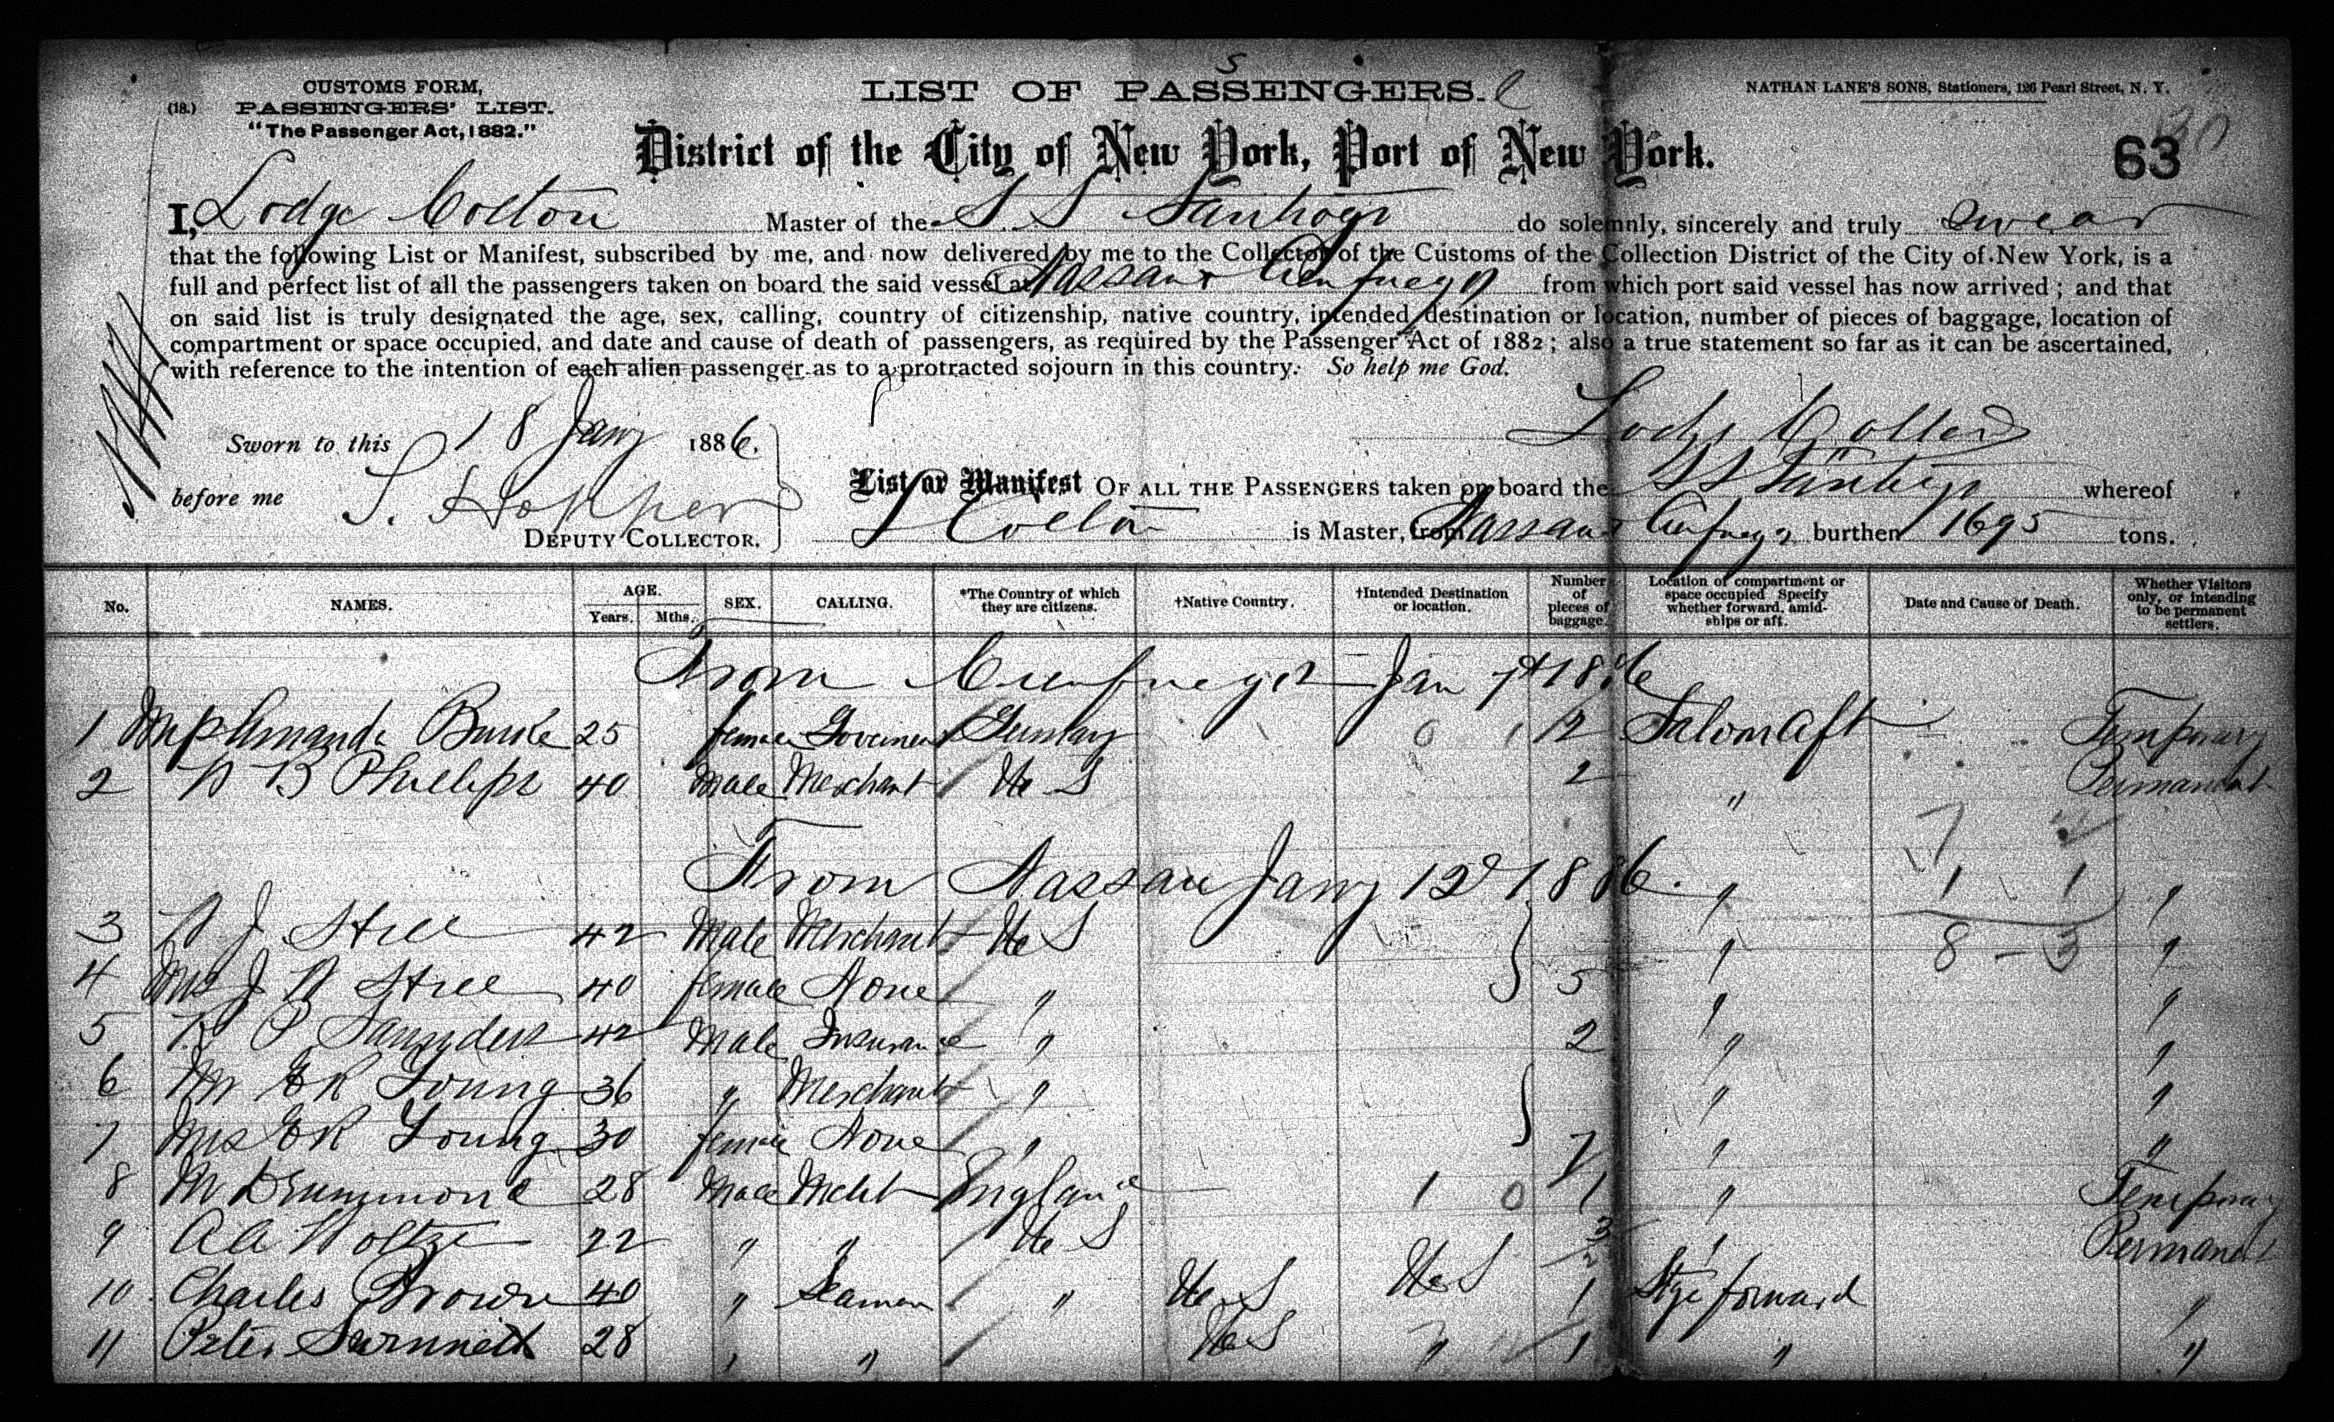 CUSTOMS FORM,
(18.) PASSENGERS' LIST.
"The Passenger Act, 1882."
LIST OF PASSENGERS.
NATHAN LANE'S SONS, Stationers, 126 Pearl Street, N. Y.
District of the City of New York, Port of New York.
63
I, Lodge Colton Master of the S S Santiago do solemnly, sincerely and truly swear
that the following List or Manifest, subscribed by me, and now delivered by me to the Collector of the Customs of the Collection District of the City of New York, is a
full and perfect list of all the passengers taken on board the said vessel at Nassau & Cienfuegos from which port said vessel has now arrived; and that
on said list is truly designated the age, sex, calling, country of citizenship, native country, intended destination or location, number of pieces of baggage, location of
compartment or space occupied, and date and cause of death of passengers, as required by the Passenger Act of 1882; also a true statement so far as it can be ascertained,
with reference to the intention of each alien passenger as to a protracted sojourn in this country. So help me God.
Sworn to this 18 Jany 1886.
Lodge Colton
before me S. Hopper
DEPUTY COLLECTOR.
List or Manifest OF ALL THE PASSENGERS taken on board the S S Santiago whereof
L Colton is Master, from Nassau & Cienfuegos burthen 1695 tons.
No. NAMES. AGE. Years. Mths. SEX. CALLING. *The Country of which they are citizens. †Native Country. †Intended Destination or location. Number of pieces of baggage. Location of compartment or space occupied Specify whether forward, amidships or aft. Date and Cause of Death. Whether Visitors only, or intending to be permanent settlers.
From Cienfuegos Jan 7th 1886
1 Amanda Burke 25 female 2 Saloon Aft Temporary
2 B Phillips 40 Male Merchant U S 2 " Permanent
From Nassau Jany 12 1886. " "
3 J Stell 42 Male Merchant U S " "
4 Mrs J Stell 40 female None " 5 " "
5 P Saunders 42 Male Insurance " 2 " "
6 Mr E R Young 36 " Merchant " " "
7 Mrs E R Young 30 female None " 7 " "
8 M Drummond 28 Male Mcht England 1 0 1 " Temporary
9 A A Woltze 22 " " U S 3 " Permanent
10 Charles Brown 40 " Seaman " U S U S 1 Stge forward "
11 Peter 28 " " U S " 1 " "
7
1 1
8 - 3